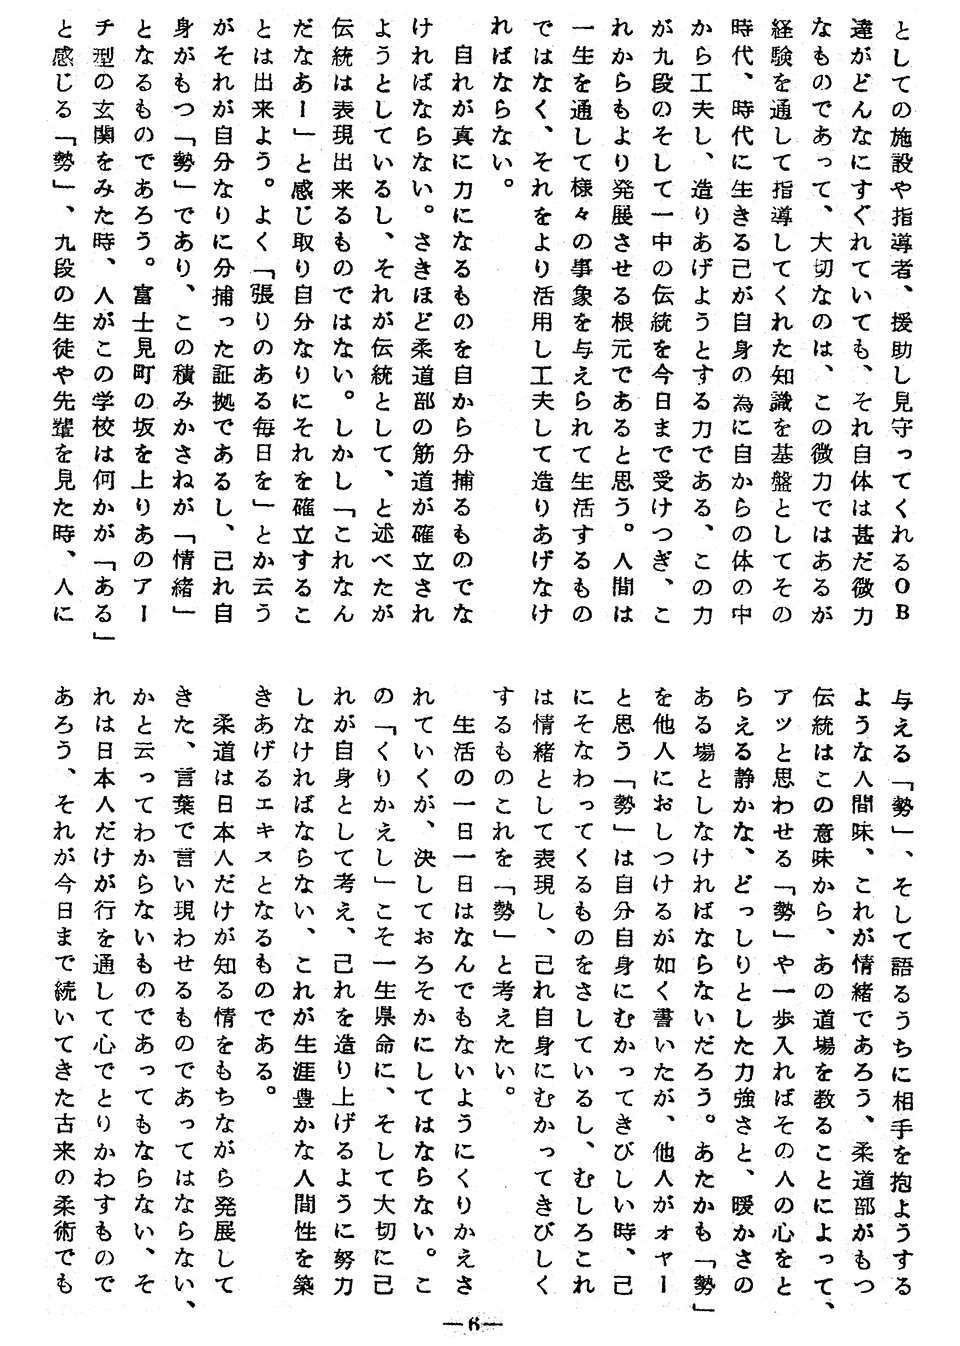 としての施設や指導者、援助し見守ってくれるOB
達がどんなにすぐれていても、それ自体は甚だ微力
なものであって、大切なのは、この微力ではあるが
経験を通して指導してくれた知識を基盤としてその
時代、時代に生きる己が自身の為に自からの体の中
から工夫し、造りあげようとする力である、この力
が九段のそして一中の伝統を今日まで受けつぎ、こ
れからもより発展させる根元であると思う。人間は
一生を通して様々の事象を与えられて生活するもの
ではなく、それをより活用し工夫して造りあげなけ
ればならない。
自れが真に力になるものを自から分捕るものでな
ければならない。さきほど柔道部の筋道が確立され
ようとしているし、それが伝統として、と述べたが
伝統は表現出来るものではない。しかし「これなん
だなあー」と感じ取り自分なりにそれを確立するこ
とは出来よう。よく「張りのある毎日を」とか云う
がそれが自分なりに分捕った証拠であるし、己れ自
身がもつ「勢」であり、この積みかさねが「情緒」
となるものであろう。富士見町の坂を上りあのアー
チ型の玄関をみた時、人がこの学校は何かが「ある」
と感じる「勢」、九段の生徒や先輩を見た時、人に
与える「勢」、そして語るうちに相手を抱ようする
ような人間味、これが情緒であろう、柔道部がもつ
伝統はこの意味から、あの道場を教ることによって、
アッと思わせる「勢」や一歩入ればその人の心をと
らえる静かな、どっしりとした力強さと、暖かさの
ある場としなければならないだろう。あたかも「勢」
を他人におしつけるが如く書いたが、他人がオャー
と思う「勢」は自分自身にむかってきびしい時、己
にそなわってくるものをさしているし、むしろこれ
は情緒として表現し、己れ自身にむかってきびしく
するものこれを「勢」と考えたい。
生活の一日一日はなんでもないようにくりかえさ
れていくが、決しておろそかにしてはならない。こ
の「くりかえし」こそ一生県命に、そして大切に己
れが自身として考え、己れを造り上げるように努力
しなければならない、これが生涯豊かな人間性を築
きあげるエキスとなるものである。
柔道は日本人だけが知る情をもちながら発展して
きた、言葉で言い現わせるものであってはならない、
かと云ってわからないものであってもならない、そ
れは日本人だけが行を通して心でとりかわすもので
あろう、それが今日まで続いてきた古来の柔術でも
—6—